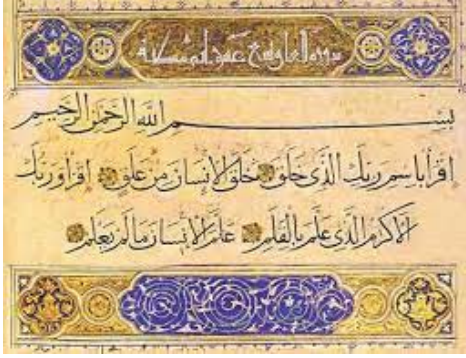 سورة
بِسْمِ اللَّهِ الرَّحْمَنِ الرَّحِيمِ
اقْرَأْ بِاسْمِ رَبِّكَ الَّذِي خَلَقَ خَلَقَ الْإِنْسَانَ مِنْ عَلَقٍ اقْرَأْ وَرَبُّكَ
الْأَكْرَمُ الَّذِي عَلَّمَ بِالْقَلَمِ عَلَّمَ الْإِنْسَانَ مَا لَمْ يَعْلَمْ